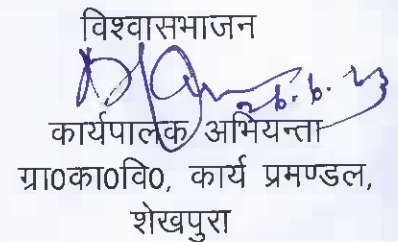 विश्वासभाजन
कार्यपालक अभियन्ता
ग्रा०का०वि०, कार्य प्रमण्डल,
शेखपुरा